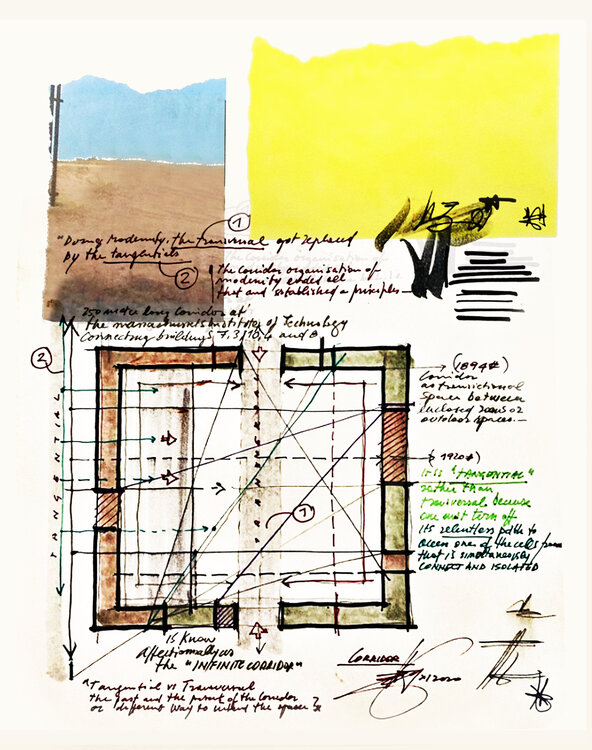 1
"During Modernity, the transversal got replaced
by the tangentials
2
the corridor organisation of
modernity ended all
that and established a principles
250 metre long corridor at
the massachusetts institute of Technology
Connecting buildings 7, 3, 10, 4 and 8
2
TANGENTIAL
TRANSVERSAL
1
(1894#)
Corridor
as transictional
spaces between
enclosed rooms or
outdoor spaces.
(1920#)
It is "TANGENTIAL"
rather than
transversal because
one must turn off
its relentless path to
one of the cells
that is simultaneously
CONNECT AND ISOLATED
is Know
affectionally as
the "INFINITE CORRIDOR"
CORRIDOR
"Tangential vs Transversal
the past and the present of the corridor
or different way to the space?